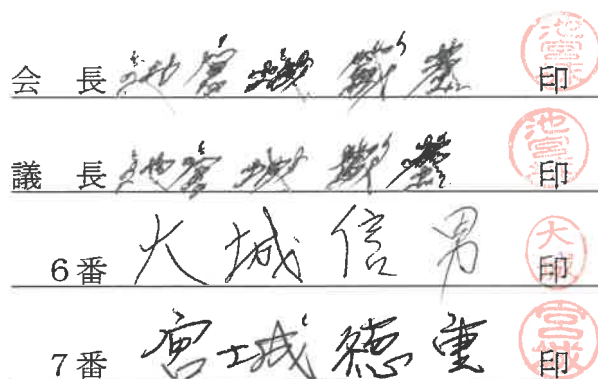 会 長 池宮城 印
議 長 池宮城 印
6番 大城信男 印
7番 宮城徳重 印